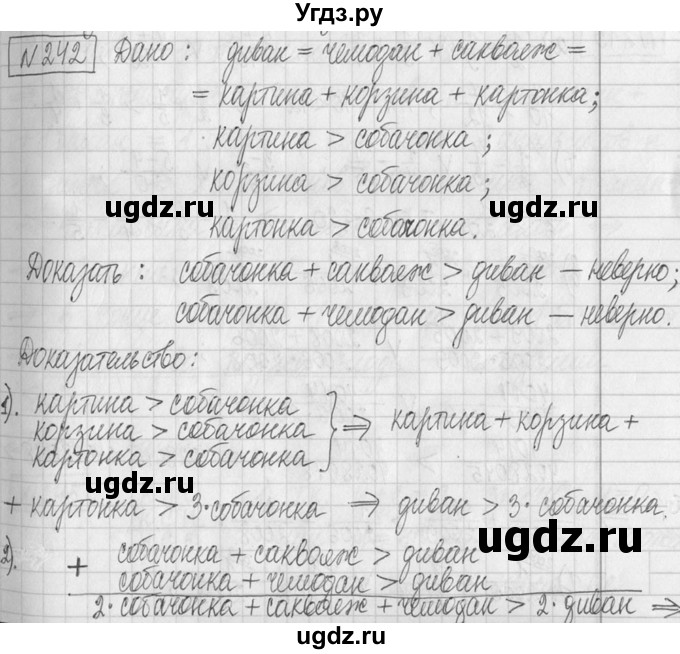 Угдз.ру
№242 Дано: диван = чемодан + саквояж =
= картина + корзина + картонка;
картина > собачонка;
корзина > собачонка;
ugdz.ru
ugdz.ru
картонка > собачонка.
Доказать: собачонка + саквояж > диван — неверно;
собачонка + чемодан > диван — неверно.
ugdz.ru
Доказательство:
1). картина > собачонка
корзина > собачонка
картонка > собачонка
} ⇒ картина + корзина +
ugdz.ru
+ картонка > 3·собачонка ⇒ диван > 3·собачонка.
ugdz.ru
2). + собачонка + саквояж > диван
собачонка + чемодан > диван
2·собачонка + саквояж + чемодан > 2·диван ⇒
ugdz.ru